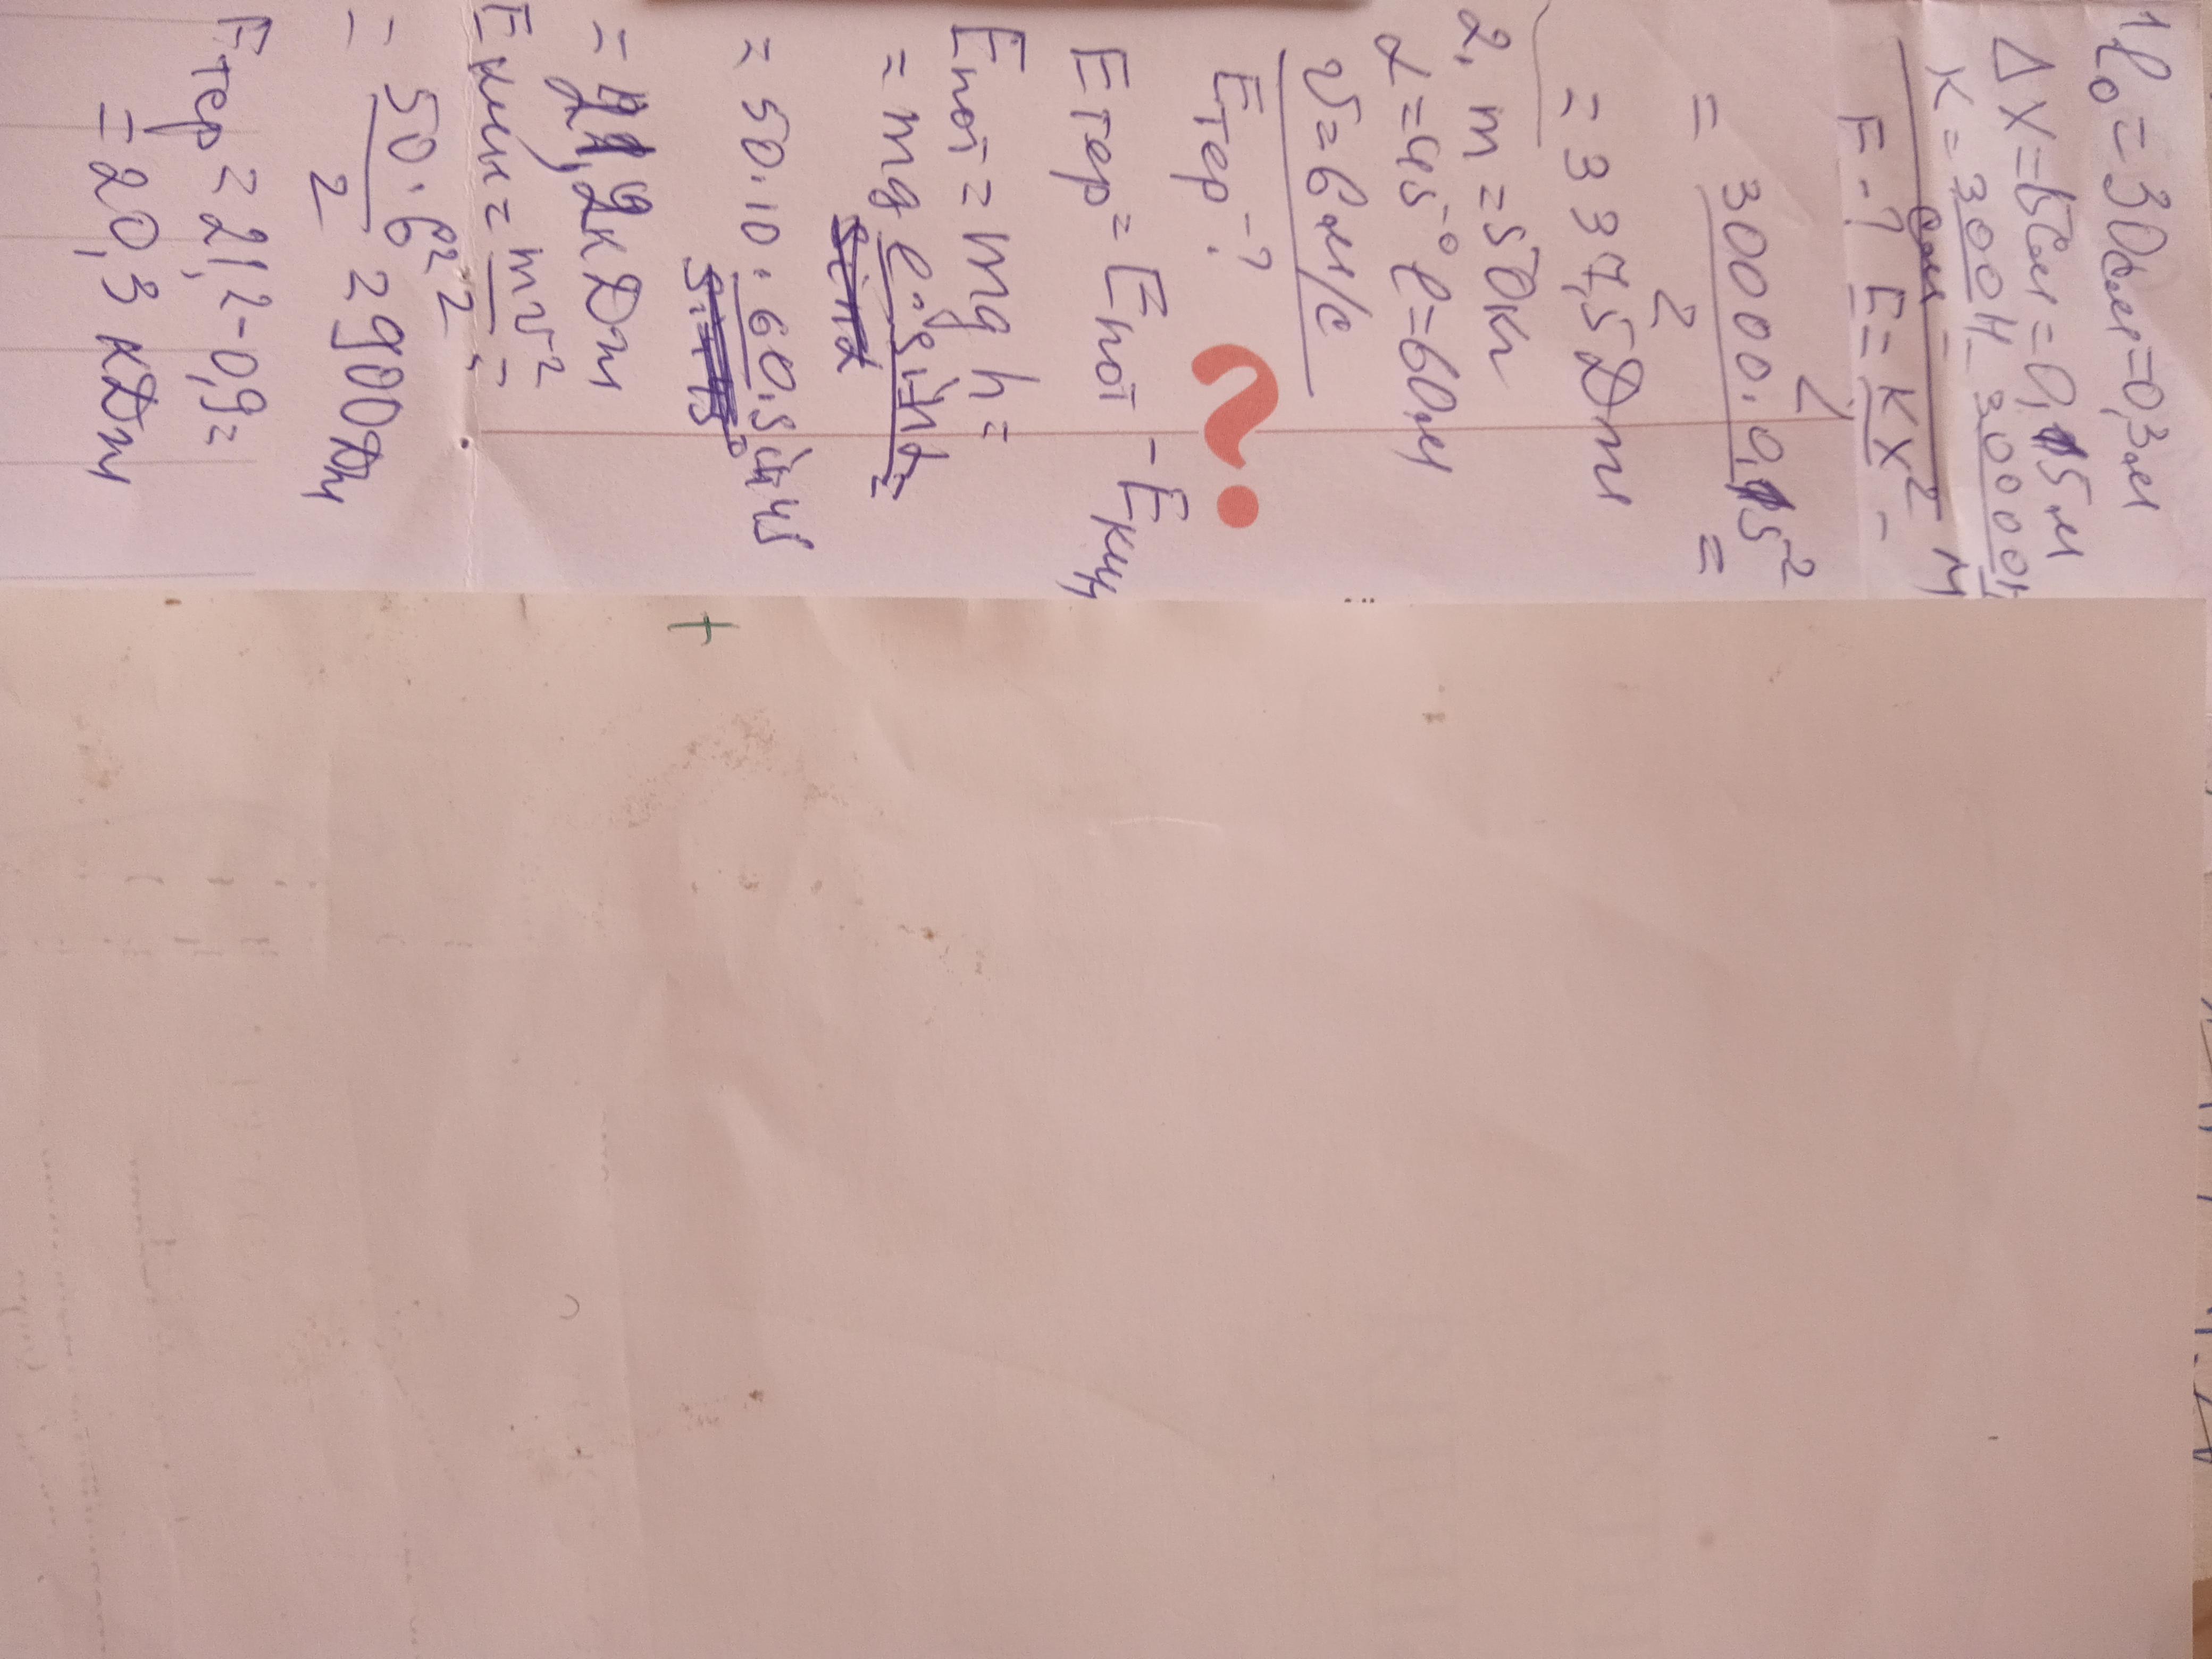 1. l₀ = 30см = 0,3м
Δx = 15см = 0,15м
k = 300Н/см = 30000Н/м
F - ? E = kx²/2 =
= 30000 · 0,15²/2 =
= 337,5Дж
2. m = 50кг
α = 45° l = 60м
v = 6м/с
Eтер - ?
Eтер = Eпот - Eкин
Eпот = mgh =
= mg l · sinα =
= 50 · 10 · 60 · sin45
= 21,2кДж
Eкин = mv²/2 =
= 50 · 6²/2 = 900Дж
Eтер = 21,2 - 0,9 =
= 20,3 кДж
?
+